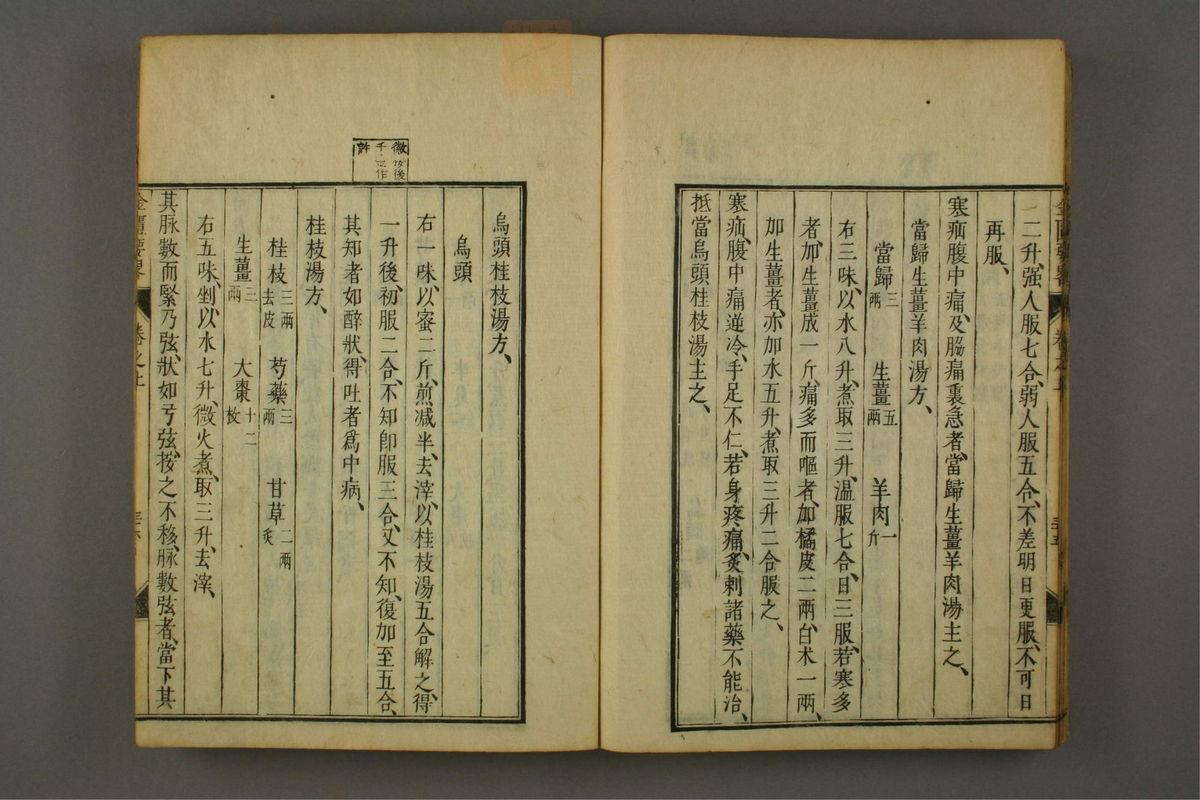 二升、强人服七合、弱人服五合、不差明日更服、不可日
再服、
寒疝腹中痛、及脇痛裏急者、當歸生薑羊肉湯主之、
當歸生薑羊肉湯方、
當歸三兩 生薑五兩 羊肉一斤
右三味、以水八升、煮取三升、温服七合、日三服、若寒多
者、加生薑成一斤、痛多而嘔者、加橘皮二兩、白术一兩、
加生薑者、亦加水五升、煮取三升二合服之、
寒疝、腹中痛、逆冷、手足不仁、若身疼痛、灸刺諸藥不能治、
抵當烏頭桂枝湯主之、
烏頭桂枝湯方、
烏頭
右一味、以蜜二斤、煎减半、去滓、以桂枝湯五合解之、得
一升後、初服二合、不知即服三合、又不知、復加至五合、
其知者如醉狀、得吐者爲中病、
桂枝湯方、
桂枝三兩去皮 芍藥三兩 甘草二兩炙
生薑三兩 大棗十二枚
右五味、剉、以水七升、微火煮、取三升、去滓、
其脉數而緊乃弦、狀如弓弦、按之不移、脉數弦者、當下其
卷之上